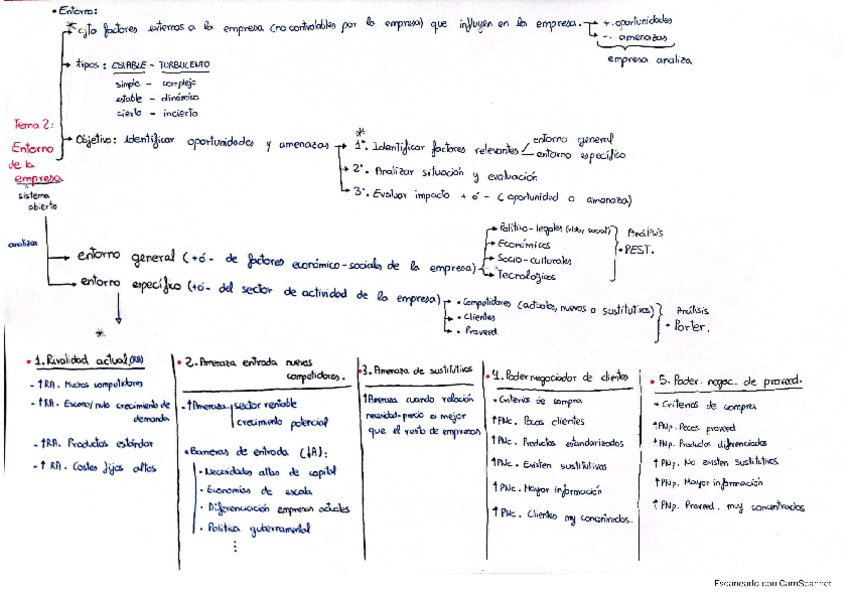 • Entorno:
* cjto factores externos a la empresa (no controlables por la empresa) que influyen en la empresa.
+. oportunidades
-. amenazas
empresa analiza
tipos: ESTABLE - TURBULENTO
simple - complejo
estable - dinámico
cierto - incierto
Tema 2:
Entorno
de la
empresa
sistema
abierto
Objetivo: identificar oportunidades y amenazas
*
1º. Identificar factores relevantes
entorno general
entorno específico
2º. Analizar situación y evaluación
3º. Evaluar impacto + ó - (oportunidad o amenaza)
analizar
entorno general (+ó- de factores económico-sociales de la empresa)
Político-legales
Económicos
Socio-culturales
Tecnológicos
Análisis
• PEST.
entorno específico (+ó- del sector de actividad de la empresa)
• Competidores (actuales, nuevos o sustitutivos)
• Clientes
• Proveed.
Análisis
• Porter.
*
• 1. Rivalidad actual (RA)
- ↑RA. Muchos competidores
- ↑RA. Escaso/nulo crecimiento de
demanda
- ↑RA. Productos estándar
- ↑ RA. Costes fijos altos
• 2. Amenaza entrada nuevos
competidores.
- ↑Amenaza sector rentable
crecimiento potencial
• Barreras de entrada (↓A):
• Necesidades altas de capital
• Economías de escala
• Diferenciación empresas actuales
• Política gubernamental
⋮
• 3. Amenaza de sustitutivos
↑Amenaza cuando relación
necesidad-precio es mejor
que el resto de empresas
• 4. Poder negociador de clientes
→ Criterios de compra
↑PNc. Pocos clientes
↑PNc. Productos estandarizados
↑PNc. Existen sustitutivos
↑PNc. Mayor información
↑PNc. Clientes muy concentrados.
• 5. Poder. negoc. de proveed.
→ Criterios de compra
↑PNp. Pocos proveed
↑PNp. Productos diferenciados
↑PNp. No existen sustitutivos
↑PNp. Mayor información
↑PNp. Proveed. muy concentrados
Escaneado con CamScanner